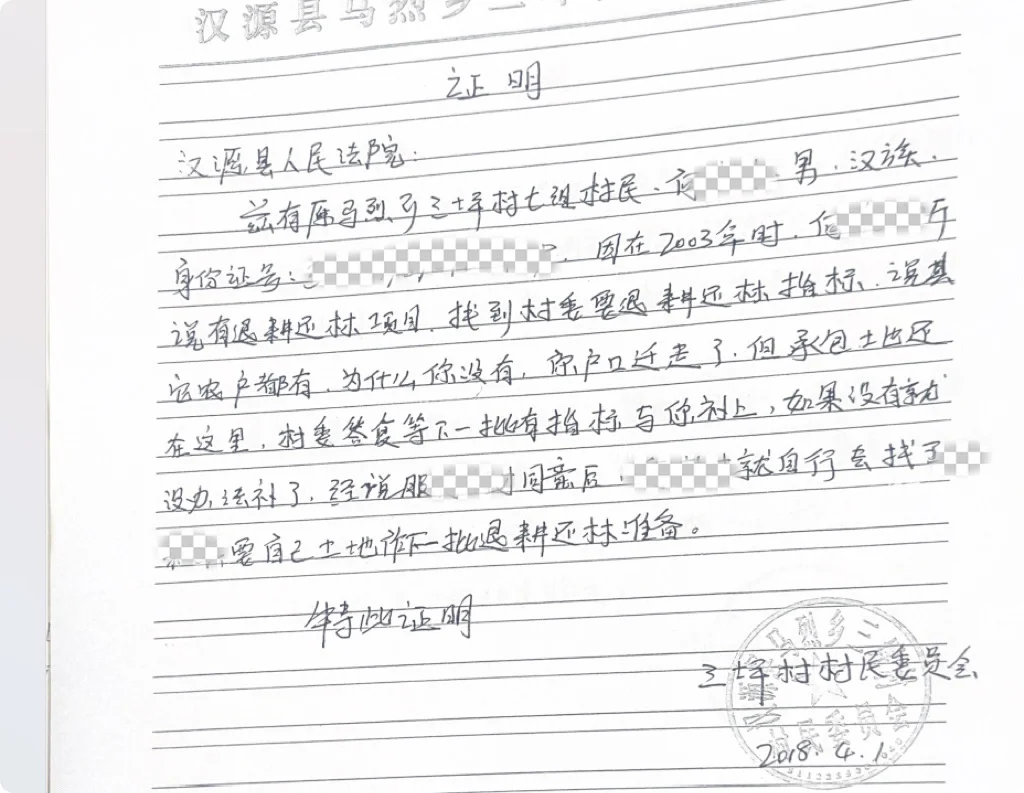 汉源县马烈乡
证明
汉源县人民法院：
兹有原马烈乡三坪村七组村民、何 男，汉族，
身份证号： ，因在2003年时，何 听
说有退耕还林项目，找到村委要退耕还林指标，说其
它农户都有，为什么你没有，你户口迁走了，但承包土地还
在这里，村委答复等下一批有指标与你补上，如果没有就
没办法补了，经说服 同意后， 就自行去找了
要自己土地作下一批退耕还林准备。
特此证明
三坪村村民委员会
2018.4.1